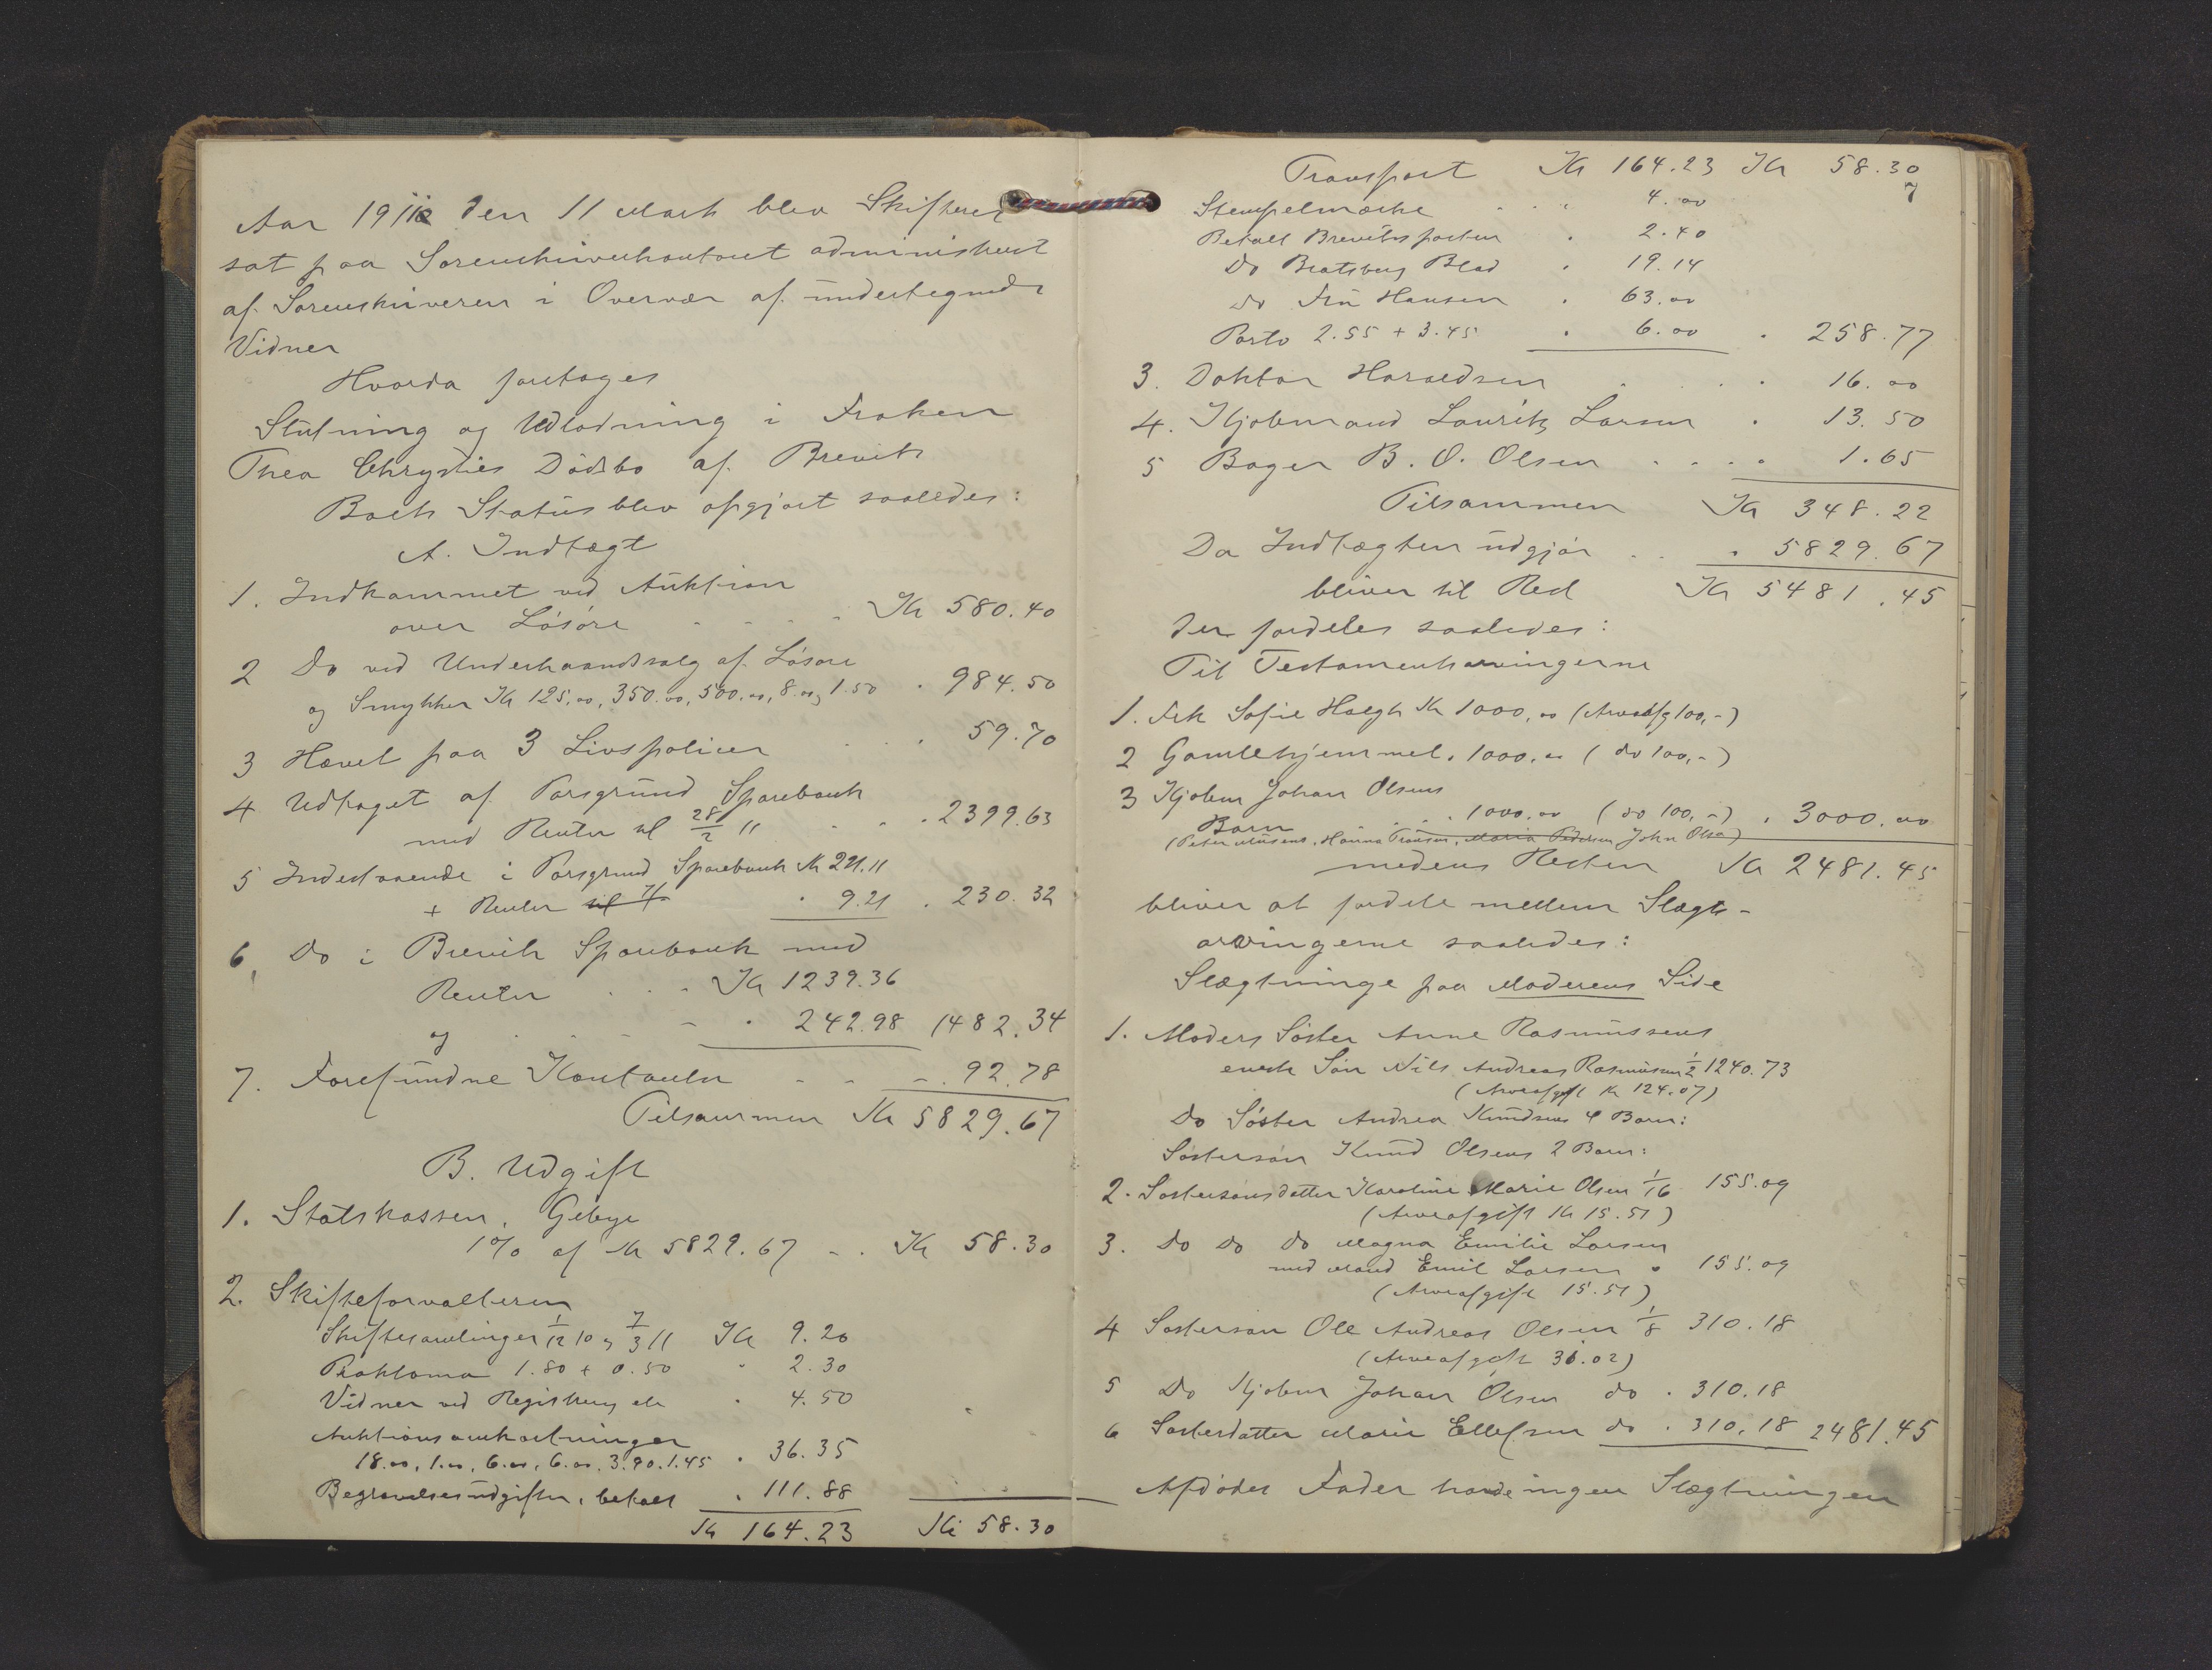 Aar 1911 den 11 Marts blev Skifteret
sat paa Sorenskriverkontoret administreret
af Sorenskriveren i Overvær af undertegnede
Vidner
Hvorda foretoges
Slutning og Udlodning i Frøken
Thea Chrysties Dødsbo af Brevik
Boets Status blev opgjort saaledes:
A. Indtægt
1. Indkommet ved Auktion
over Løsøre . . . . Kr 580.40
2 Do ved Underhaandssalg af Løsøre
og Smykker Kr 125.00, 350.00, 500.00, 8.00, 1.50 . 984.50
3 Hævet paa 3 Livspolicer . . . 59.70
4 Udtaget af Porsgrund Sparebank
med Renter til 28/2 11 . . . 2399.63
5 Indestaaende i Porsgrund Sparebank Kr 221.11
+ Renter til . 9.21 . 230.32
6, Do i Brevik Sparebank med
Renter . . . Kr 1239.36
og . . . . . 242.98 1482.34
7. Forefundne Kontanter - - - . 92.78
Tilsammen Kr 5829.67
B. Udgift
1. Statskassen, Gebyr
1% af Kr 5829.67 - . Kr 58.30
2. Skifteforvalteren
Skiftesamlinger 1/12 10 og 7/3 11 Kr 9.20
Proklama 1.80 + 0.50 " 2.30
Vidner ved Registrering etc . 4.50
Auktionsomkostninger
18.00, 1.00, 6.00, 6.00, 3.90, 1.45 . 36.35
Begravelsesudgifter, betalt . 111.88
Kr 164.23 Kr 58.30
7
Transport Kr 164.23 Kr 58.30
Stempelmærke . . . 4.00
Betalt Breviksposten . 2.40
Do Bratsberg Blad . 19.14
Do Fru Hansen . 63.00
Porto 2.55 + 3.45 . 6.00 . 258.77
3. Doktor Haraldsen . . . . 16.00
4. Kjøbmand Lauritz Larsen . 13.50
5 Bager B. O. Olsen . . . . 1.65
Tilsammen Kr 348.22
Da Indtægten udgjør . . . 5829.67
bliver til Rest Kr 5481.45
der fordeles saaledes:
Til Testamentsarvingerne
1. Frk Sofie Høegh Kr 1000,00 (Arveafg 100,-)
2 Gamlehjemmet . 1000.00 (do 100,-)
3 Kjøbm Johan Olsens
Børn . . . 1000.00 (do 100,-) . 3000.00
(Peter Hanna Maria Pedersen John Olsen)
medens Resten Kr 2481.45
bliver at fordele mellem Slægts-
arvingerne saaledes:
Slægtninge paa Moderens Side
1. Moders Søster Anne Rasmussens
eneste Søn Nils Andreas Rasmussen 1/2 1240.73
(Arveafgift Kr 124.07)
Do Søster Andrea Knudsens 4 Børn:
Søstersøn Knud Olsens 2 Børn:
2. Søstersønsdatter Karoline Marie Olsen 1/16 155.09
(Arveafgift Kr 15.51)
3. Do Do Do Magna Emilie Larsen
med Mand Emil Larsen . 155.09
(Arveafgift 15.51)
4 Søstersøn Ole Andreas Olsen 1/8 310.18
(Arveafgift 31.02)
5 Do Kjøbm Johan Olsen do . 310.18
6 Søsterdatter Marie Ellefsen do . 310.18 2481.45
Afdødes Fader havde ingen Slægtninger